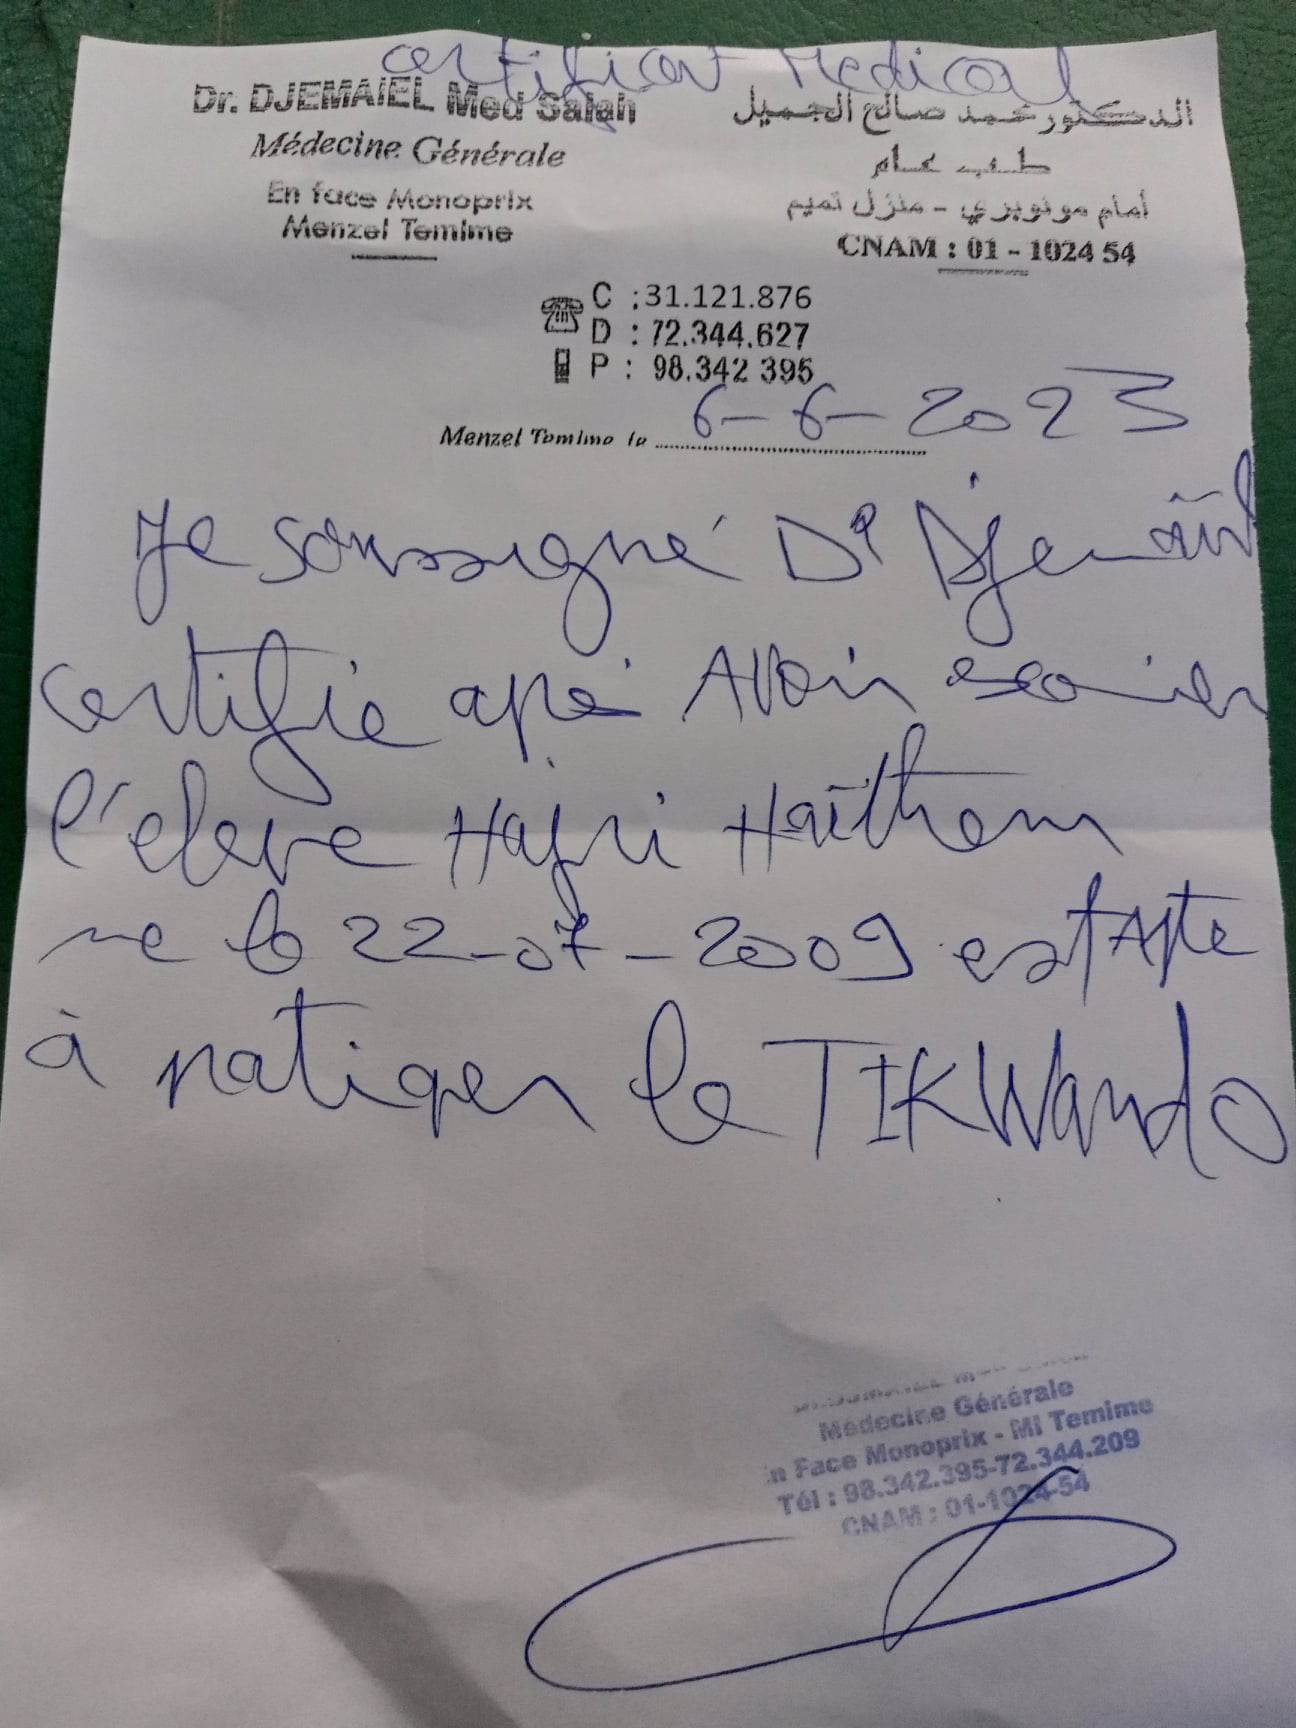 Certificat Medical
Dr. DJEMAIEL Med Salah
Médecine Générale
En face Monoprix
Menzel Temime
الدكتور محمد صالح الجميل
طب عام
أمام مونوبري - منزل تميم
CNAM : 01 - 1024 54
C : 31.121.876
D : 72.344.627
P : 98.342 395
Menzel Temime le 6-6-2023
Je soussigné Dr Djemaïel
certifie après Avoir examiner
l'éleve Hajri Haïthem
ne le 22-07-2009 est Apte
à pratiquer le TIKWando
Médecine Générale
En Face Monoprix - Ml Temime
Tél : 98.342.395-72.344.209
CNAM : 01-1024-54